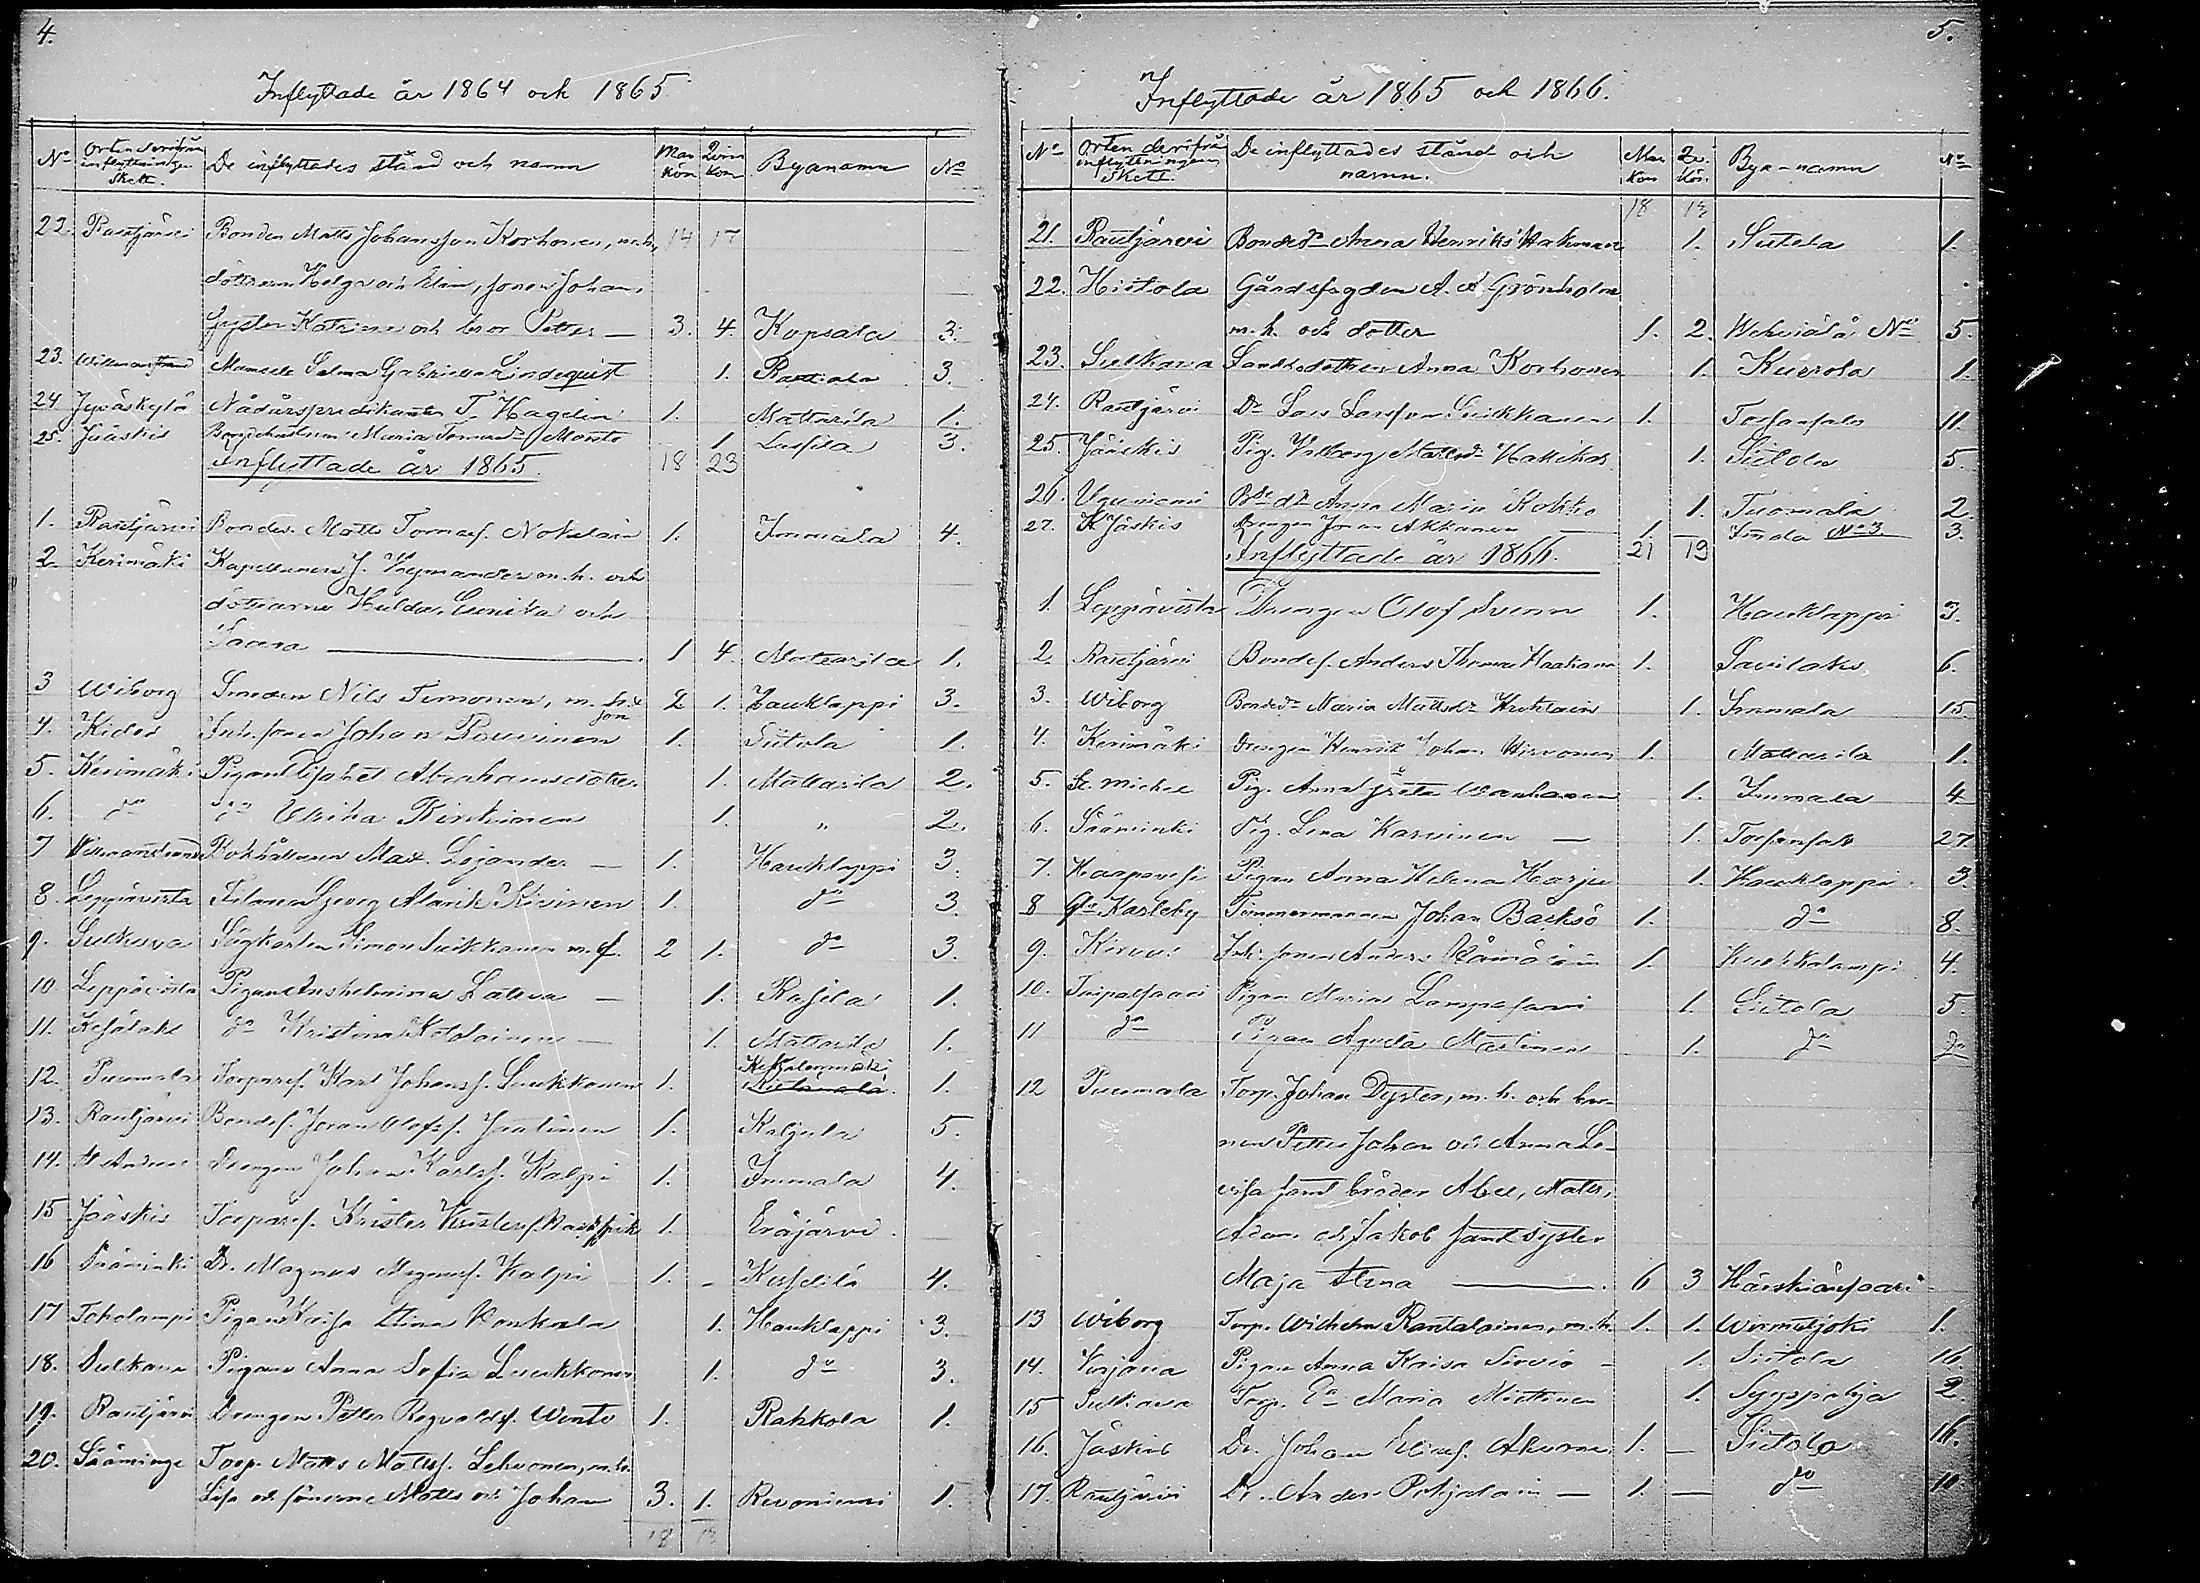 4.
Inflyttade år 1864 och 1865
No Orten derifrån inflyttningen skett. De inflyttades stånd och namn Man kön Qvin kön Byanamn No
22. Rautjärvi Bonden Matts Johansson Korhonen, m.h, 14 17
döttrarne Helga och Elin, sonen Johan,
syster Katrina och bror Petter — 3. 4. Kopsala 3.
23. Willmanstrand Mamsell Selma Gabriella Lindequist 1. Rautiala 3.
24 Jyväskylä Nådårspredikanten T. Hagelin 1. Mattarila 1.
25. Jääskis Maria 1 3.
Inflyttade år 1865. 18 23
1. Rautjärvi Bondes. Matts Tomass. Nokelain 1. Immala 4.
2. Kerimäki Kapellanen J. Wegmander m.h. och
döttrarne Hulda, Eunika och
1 4. Mattarila 1.
3 Wiborg Smeden Nils Timonen, m. h. o son 2 1. Hauklappi 3.
4. Kides Inh. sonen Johan 1. Siitola 1.
5. Kerimäki Pigan Elisabet Abrahamsdotter 1. Mattarila 2.
6. do do Ulrika Rinkinen 1. „ 2.
7 Willmanstrand Bokhållaren Max. — 1. Hauklappi 3.
8. Leppävirta Filaren Georg Alarik Kivinen 1. do 3.
9. Sulkava Sågkarlen Simon Suikkanen m. f. 2 1. do 3.
10 Leppävirta Pigan Anshelmina — 1. Rasila 1.
11. Kesälaks do Kristina — 1. Mattarila 1.
12. Puumala Torpares. Karl Johanss. Luukkonen 1. 1.
13. Rautjärvi Bondes. Jöran Olofss. Jaatinen 1. Kaljula 5.
14. St Andreae Drengen Johan Karlss. Kalpi 1. Immala 4.
15 Jääskis Torpares. Krister Kristerss. 1. Eräjärvi
16 Sääminki Dr. Magnus Magnuss. Kalpi 1. - 4.
17 Toholampi Pigan Kaisa Stina 1. Hauklappi 3.
18. Sulkava Pigan Anna Sofia Luukkonen 1. do 3.
19. Rautjärvi Drengen Petter Regvaldss. Wento 1. Rahkola 1.
20. Sääminge Torp. Matts Mattss. Lehvonen, m.h.
Lisa och sönerne Matts och Johan 3. 1. Revoniemi 1.
18 13
5.
Inflyttade år 1865 och 1866.
No Orten derifrån inflyttningen skett. De inflyttades stånd och namn. Man kön Qv. kön. Bya-namn No
18 13
21. Rautjärvi Bonded. Anna Henriksd. Hakman 1. Siitola 1.
22. Hiitola Gårdsfogden A. A. Grönholm
m. h. och dotter 1. 2. No 5.
23. Sulkava Anna Korhonen 1. Kuerola 1.
24. Rautjärvi Dr. Lars Larsson Suikkanen 1. Torsansalo 11.
25. Jääskis Pig. Valborg Mattsdr 1. Siitola 5.
26. Uguniemi Anna Maria Kokko 1. Tuomala 2.
27. Jääskis Drengen Jöran Akkanen — 1. No 3. 3.
Inflyttade år 1866. 21 19
1. Leppävirta Drengen Olof 1. Hauklappi 3.
2. Rautjärvi Bondes. Anders 1. Savilaks 6.
3. Wiborg Bonded. Maria Mattsdr 1. Immala 15.
4. Kerimäki Drengen Henrik Johan Hirvonen 1. Mattarila 1.
5. St. Michel Pig. Anna Greta Wanhanen 1. Immala 4
6. Sääminki Pig. Lena Karvinen — 1. Torsansalo 27.
7. Haapavesi Pigan Anna Helena Harju 1. Hauklappi 3.
8 Gla Karleby Timmermannen Johan Backsö 1. do 8.
9. Kirvus Inh. sonen Anders 1. 4.
10. Taipalsaari Pigan Maria Lampasaari 1. Siitola 5.
11 do Pigan Agneta Martinen 1. do do
12 Puumala Torp. Johan Dyster, m. h. och bar-
nen Petter Johan och Anna Lo-
visa samt bröder Abel, Matts,
Adam och Jakob samt syster
Maja Stina —. 6 3 Härskiänsaari
13 Wiborg Torp. Wilhelm Rantalainen, m.h. 1. 1. Wirmutjoki 1.
14. Pigan Anna Kaisa Siviä - 1. Siitola 16.
15 Sulkava Torp. Ea Maria Miettinen 1. Syyspohja 2.
16. Jäskis Dr. Johan 1. — Siitola 16.
17. Rautjärvi Dr. Anders Pohjalain — 1. — do 10